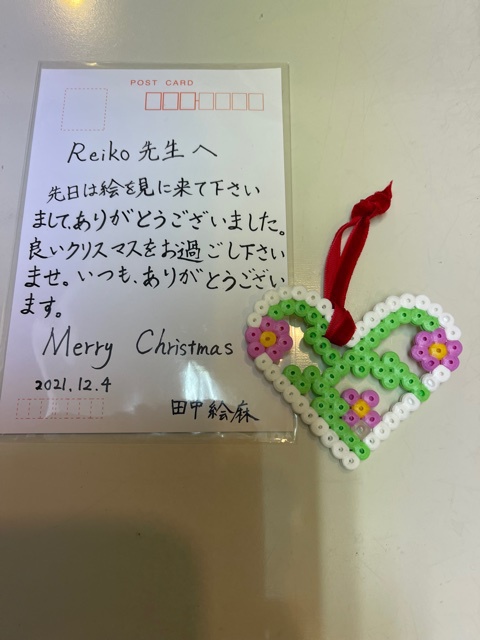 POST CARD
Reiko 先生へ
先日は絵を見に来て下さい
まして、ありがとうございました。
良いクリスマスをお過ごし下さい
ませ。いつも、ありがとうござい
ます。
Merry Christmas
2021.12.4
田中絵麻